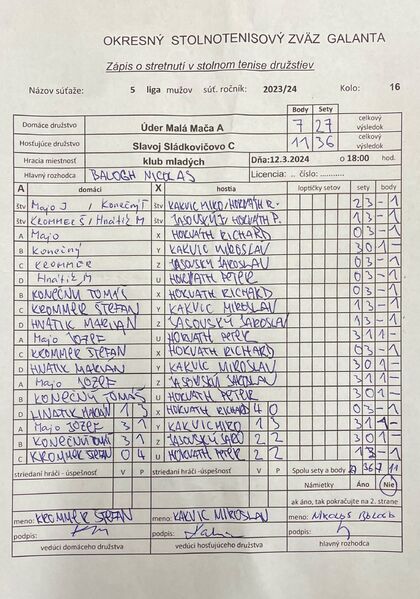 OKRESNÝ STOLNOTENISOVÝ ZVÄZ GALANTA
Zápis o stretnutí v stolnom tenise družstiev
Názov súťaže: 5 liga mužov súť. ročník: 2023/24 Kolo: 16
Body Sety
Domáce družstvo Úder Malá Mača A 7 27 celkový výsledok
Hosťujúce družstvo Slavoj Sládkovičovo C 11 36 celkový výsledok
Hracia miestnosť klub mladých Dňa:12.3.2024 o 18:00 hod.
Hlavný rozhodca BALOGH NICOLAS Licencia: .. číslo: ..........
A domáci X hostia loptičky setov sety body
štv Majo J / Konečný T štv KAKVIC MIRO/HORVÁTH R. 2 3 - 1
štv KROMMER Š/ Hnátik M štv JASOVSKÝ J/ HORVATH P. 1 3 - 1
A Majo X HORVÁTH RICHARD 0 3 - 1
B Konečný Y KAKVIC MIROSLAV 3 0 1 -
C KROMMER Z JASOVSKÝ JAROSLAV 0 3 - 1
D Hnátik M U HORVATH PETER
B KONEČNÝ TOMÁŠ X HORVATH RICHARD 0 3 - 1
C KROMMER ŠTEFAN Y KAKVIC MIROSLAV 1 3 - 1
D HNATIK MARIAN Z JASOVSKÝ JAROSLAV 1 3 - 1
A Majo JOZEF U HORVATH PETER 3 1 1 -
C KROMMER STEFAN X HORVATH RICHARD 0 3 - 1
D HNATIK MARIAN Y KAKVIC MIROSLAV
A Majo JOZEF Z JASOVSKÝ JAROSLAV 3 1 1 -
B KONEČNÝ TOMÁŠ U HORVATH PETER 3 0 1 -
D HNATIK MARIAN 1 3 X HORVATH RICHARD 4 0 0 3 - 1
A Majo JOZEF 3 1 Y KAKVIC MIRO 1 3 3 1 1 -
B KONEČNÝ TOMI 3 1 Z JASOVSKÝ JARO 2 2 3 0 1 -
C KROMMER STEFAN 0 4 U HORVATH PETER 2 2 1 3 - 1
striedaní hráči - úspešnosť V P striedaní hráči - úspešnosť V P Spolu sety a body 27 36 7 11
Námietky Áno Nie
ak áno, tak pokračujte na 2. strane
meno: KROMMER STEFAN meno: KAKVIC MIROSLAV meno: NIKOLAS BALOGH
podpis: podpis: podpis:
vedúci domáceho družstva vedúci hosťujúceho družstva hlavný rozhodca